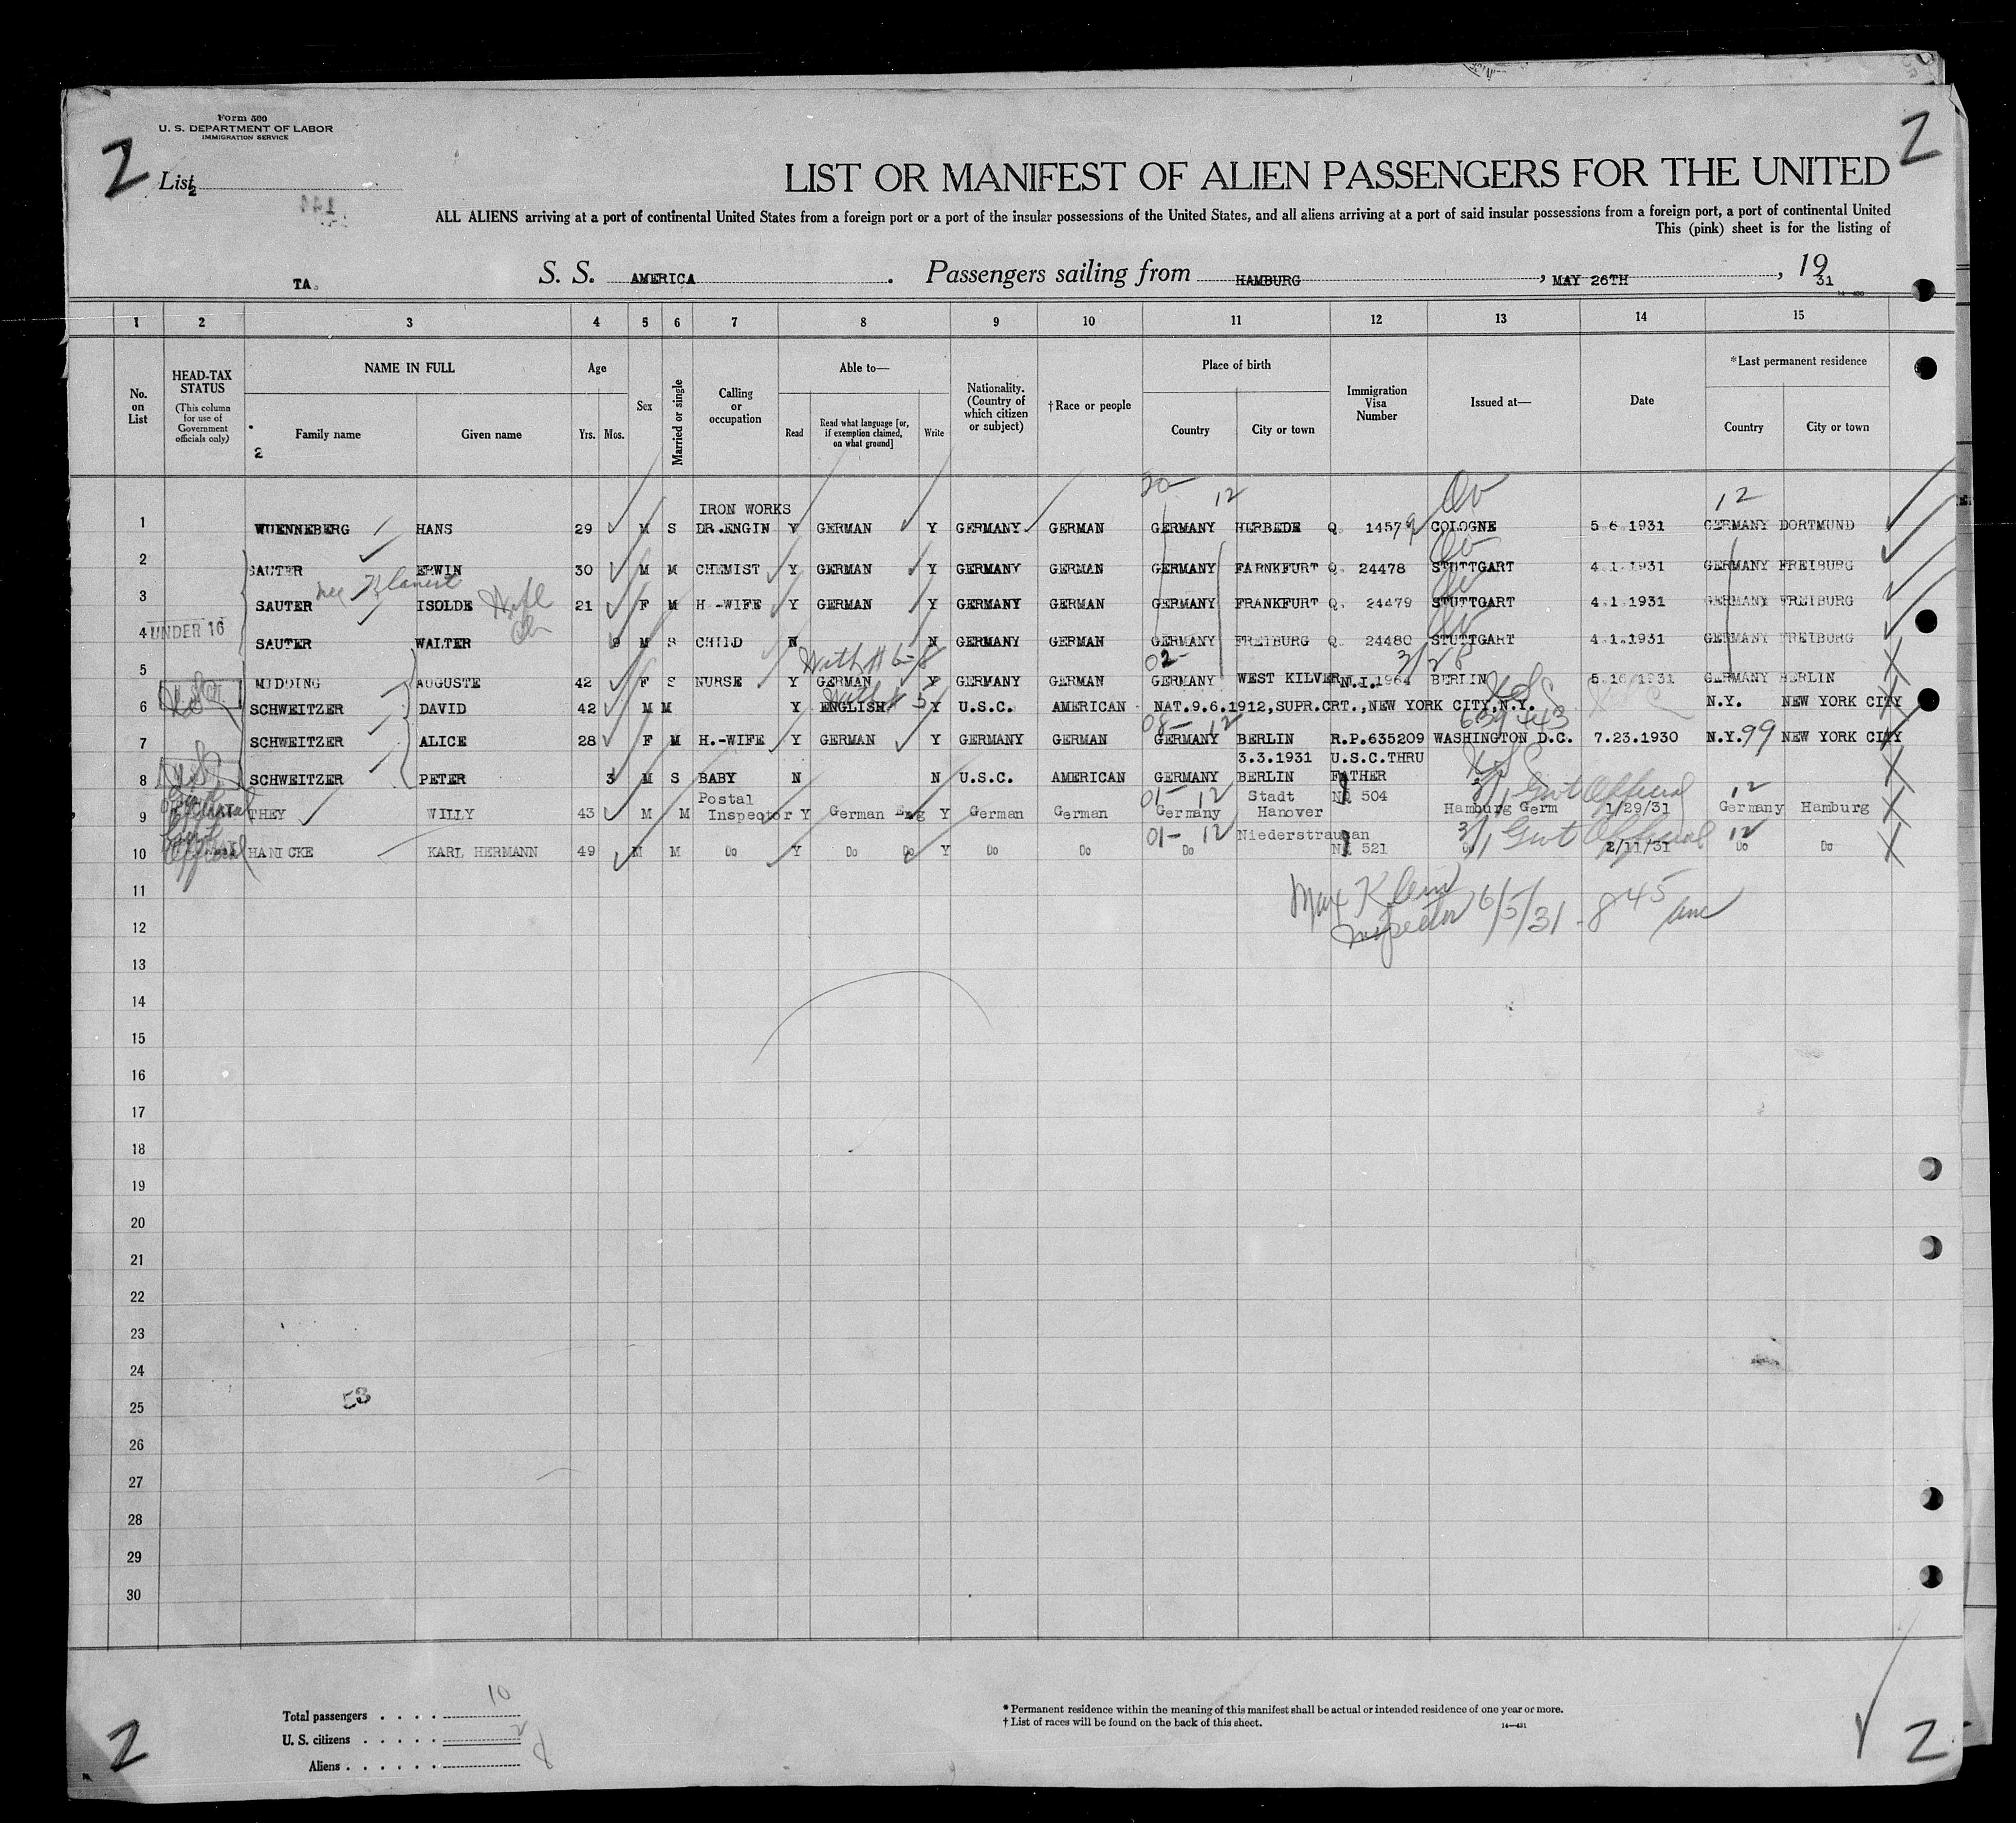 Form 500
U. S. DEPARTMENT OF LABOR
IMMIGRATION SERVICE
2
2
List 2
LIST OR MANIFEST OF ALIEN PASSENGERS FOR THE UNITED
ALL ALIENS arriving at a port of continental United States from a foreign port or a port of the insular possessions of the United States, and all aliens arriving at a port of said insular possessions from a foreign port, a port of continental United
This (pink) sheet is for the listing of
TA. S. S. AMERICA. Passengers sailing from HAMBURG, MAY 26TH, 1931
1 2 3 4 5 6 7 8 9 10 11 12 13 14 15
No. on List
HEAD-TAX STATUS (This column for use of Government officials only)
NAME IN FULL
Family name Given name
2
Age
Yrs. Mos.
Sex
Married or single
Calling or occupation
Able to—
Read Read what language [or, if exemption claimed, on what ground] Write
Nationality. (Country of which citizen or subject)
† Race or people
Place of birth
Country City or town
Immigration Visa Number
Issued at—
Date
* Last permanent residence
Country City or town
20 12 Qv 12
IRON WORKS
1 WUENNEBERG HANS 29 M S DR.ENGIN Y GERMAN Y GERMANY GERMAN GERMANY HERBEDE Q. 1457 COLOGNE 5.6.1931 GERMANY DORTMUND
Qv
2 SAUTER ERWIN 30 M M CHEMIST Y GERMAN Y GERMANY GERMAN GERMANY FARNKFURT Q. 24478 STUTTGART 4.1.1931 GERMANY FREIBURG
nee Wife Qv
3 SAUTER ISOLDE 21 F M H.-WIFE Y GERMAN Y GERMANY GERMAN GERMANY FRANKFURT Q. 24479 STUTTGART 4.1.1931 GERMANY FREIBURG
Ch Qv
4 UNDER 16 SAUTER WALTER 9 M S CHILD N N GERMANY GERMAN GERMANY FREIBURG Q. 24480 STUTTGART 4.1.1931 GERMANY FREIBURG
With # 6-8 02- 3/2 B
5 MIDDING AUGUSTE 42 F S NURSE Y GERMAN Y GERMANY GERMAN GERMANY WEST KILVER N.I. 1964 BERLIN 5.16.1931 GERMANY BERLIN
With # 5 USC
6 USC SCHWEITZER DAVID 42 M M Y ENGLISH Y U.S.C. AMERICAN NAT.9.6.1912,SUPR.CRT.,NEW YORK CITY,N.Y. N.Y. NEW YORK CITY
08- 12 639443
7 SCHWEITZER ALICE 28 F M H.-WIFE Y GERMAN Y GERMANY GERMAN GERMANY BERLIN R.P.635209 WASHINGTON D.C. 7.23.1930 N.Y. 99 NEW YORK CITY
3.3.1931 U.S.C.THRU USC
8 USC SCHWEITZER PETER 3 M S BABY N N U.S.C. AMERICAN GERMANY BERLIN FATHER
Govt Official Postal 01- 12 Stadt 3/1 Govt Official 12
9 THEY WILLY 43 M M Inspector Y German Eng Y German German Germany Hanover NI 504 Hamburg Germ 1/29/31 Germany Hamburg
Govt Official 01- 12 Niederstraugan 3/1 Govt Official 12
10 HANICKE KARL HERMANN 49 M M Do Y Do Do Y Do Do Do NI 521 Do 2/11/31 Do Do
11 Max Klein
Inspector 6/5/31 - 8 45 am
12
13
14
15
16
17
18
19
20
21
22
23
24
25
53
26
27
28
29
30
Total passengers . . . . 10
U. S. citizens . . . . . 2
Aliens . . . . . . 8
* Permanent residence within the meaning of this manifest shall be actual or intended residence of one year or more.
† List of races will be found on the back of this sheet. 14—431
2
2